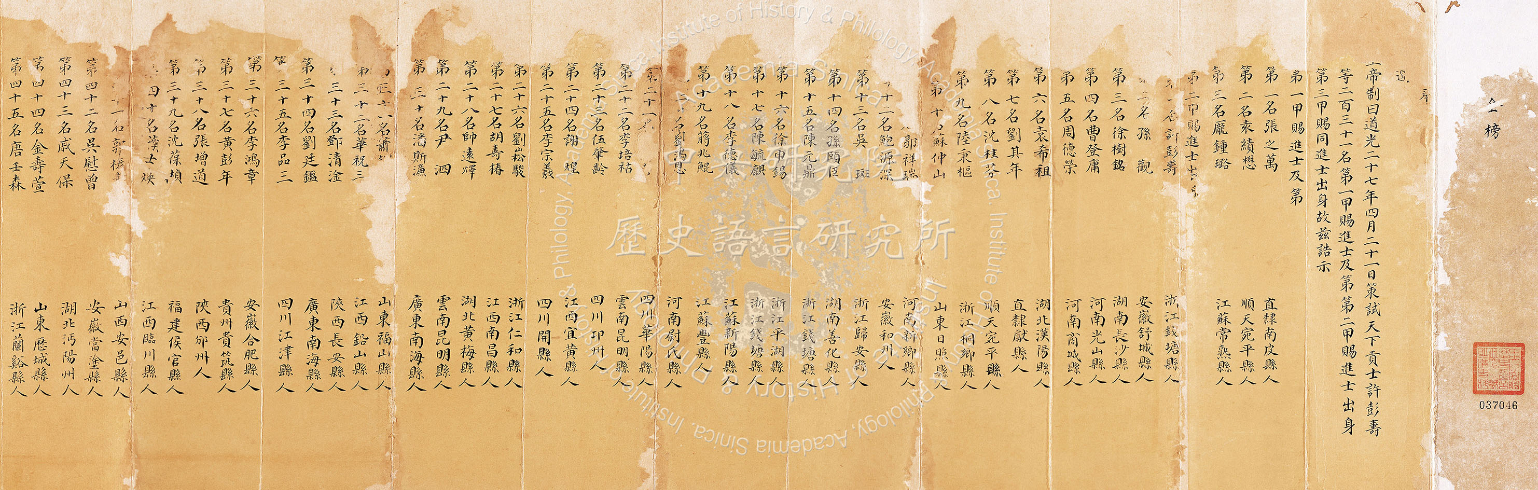 榜
帝制曰道光二十七年四月二十一日策試天下貢士許彭壽
等二百三十一名第一甲賜進士及第第二甲賜進士出身
第三甲賜同進士出身故茲誥示
第一甲賜進士及第
第一名張之萬 直隸南皮縣人
第二名袁績懋 順天宛平縣人
第三名龐鍾璐 江蘇常熟縣人
第二甲賜進士出
彭壽 浙江錢塘縣人
名孫觀 安徽舒城縣人
第三名徐樹銘 湖南長沙縣人
第四名曹登庸 河南光山縣人
第五名周德榮 河南商城縣人
第六名袁希祖 湖北漢陽縣人
第七名劉其年 直隸獻縣人
第八名沈桂芬 順天宛平縣人
第九名陸秉樞 浙江桐鄉縣人
第十名蘇仲山 山東日照縣人
郭祥瑞 河南新鄉縣人
十二名鮑源深 安徽和州人
第十三名吳 浙江歸安縣人
第十四名孫頤臣 湖南善化縣人
第十五名陳元鼎 浙江錢塘縣人
第十六名徐申錫 浙江平湖縣人
第十七名陳毓麒 浙江錢塘縣人
第十八名李德儀 江蘇新陽縣人
第十九名蔣兆鯤 江蘇豐縣人
名劉鴻恩 河南尉氏縣人
第二十一 四川華陽縣人
第二十二名李培祜 雲南昆明縣人
第二十三名伍肇齡 四川邛州人
第二十四名謝煌 江西宜黃縣人
第二十五名李宗羲 四川開縣人
第二十六名劉崧駿 浙江仁和縣人
第二十七名胡壽椿 江西南昌縣人
第二十八名帥遠燡 湖北黃梅縣人
第二十九名尹泗 雲南昆明縣人
第三十名潘斯濂 廣東南海縣人
名蕭 山東福山縣人
第三十二名華祝三 江西鉛山縣人
三十三名鄧清淦 陝西長安縣人
第三十四名劉廷鑑 廣東南海縣人
第三十五名李品三 四川江津縣人
第三十六名李鴻章 安徽合肥縣人
第三十七名黃彭年 貴州貴筑縣人
第三十八名張增道 陝西鄜州人
第三十九名沈葆楨 福建侯官縣人
四十名黃士煐 江西臨川縣人
一名郭椿 山西安邑縣人
第四十二名吳慰曾 安徽當塗縣人
第四十三名戚天保 湖北沔陽州人
第四十四名金壽萱 山東歷城縣人
第四十五名唐壬森 浙江蘭谿縣人
037046
中央研究院
歷史語言研究所
Institute of History & Philology, Academia Sinica